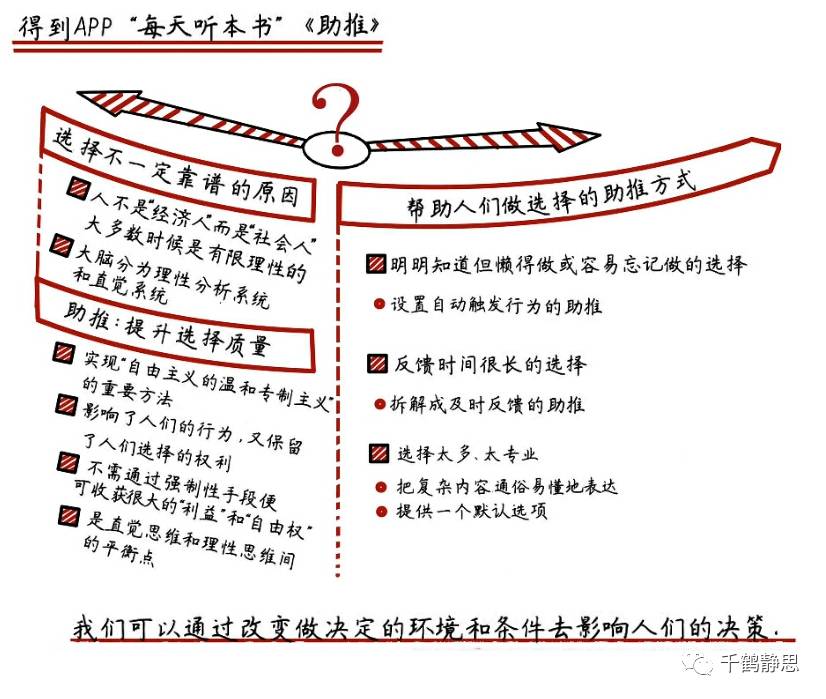 得到APP“每天听本书”《助推》
?
选择不一定靠谱的原因
人不是“经济人”而是“社会人”
大多数时候是有限理性的
大脑分为理性分析系统
和直觉系统
助推：提升选择质量
实现“自由主义的温和专制主义”
的重要方法
影响了人们的行为，又保留
了人们选择的权利
不需通过强制性手段便
可收获很大的“利益”和“自由权”
是直觉思维和理性思维间
的平衡点
帮助人们做选择的助推方式
明明知道但懒得做或容易忘记做的选择
设置自动触发行为的助推
反馈时间很长的选择
拆解成及时反馈的助推
选择太多、太专业
把复杂内容通俗易懂地表达
提供一个默认选项
我们可以通过改变做决定的环境和条件去影响人们的决策.
千鹤静思